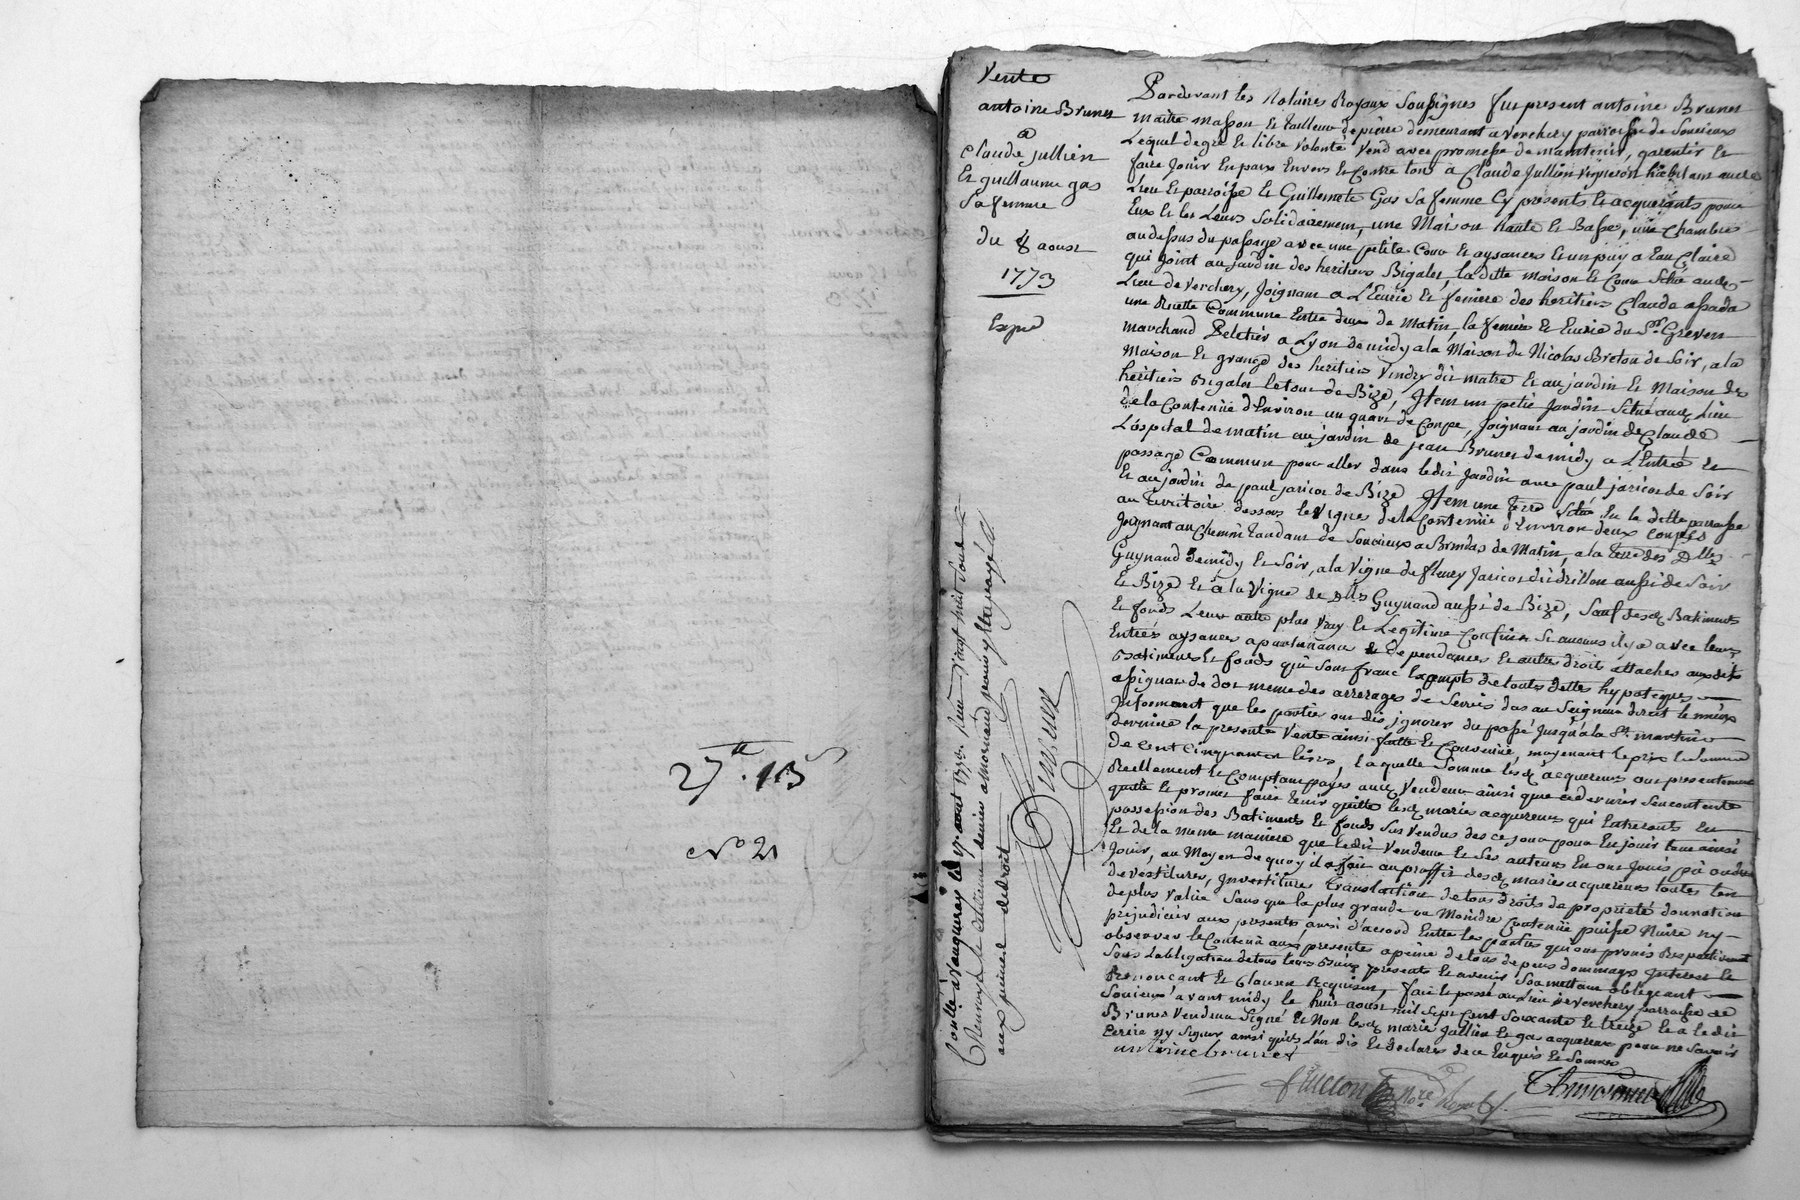 27.tt 13
No 21
Vente
antoine Brunet
a
claude jullien
Et guillaume gas
Sa femme
du 8 aoust
1773
Expié
Pardevant les Notaires Royaux Soussignes fut present antoine Brunet
maitre masson Et tailleur de pierre demeurant a verchery parroisse de Soucieux
Lequel de gré Et libre volonté vend avec promesse de maintenir, garentir Et
faire jouir En paix Envers Et Contre tous a Claude Jullien vigneron habitant audt
Lieu Et parroisse Et Guillemete Gas Sa femme Cy presents Et acquerants pour
Eux Et les Leurs Solidairement, une Maison haute Et Basse, une chambre
au dessus du passage avec une petite Cour Et aysances Et un puy a Eau Claire
qui joint au jardin des heritiers Bigalet, la ditte maison Et Cour Scitué audt
Lieu de Verchery, Joignant a L'Ecurie Et feniere des heritiers Claude
une Ruette Commune Entre deux de Matin, la feniere Et Ecurie du Sr. Greven
marchand Peletier a Lyon de midy a la Maison de Nicolas Breton de Soir, a la
Maison Et grange des heritiers Vindry dit matre Et au jardin Et Maison des
heritiers Bigalet le tout de Bize, Item un petit Jardin Scitué audt Lieu
de la Contenüe d'Environ un quart de Coupe, Joignant au jardin de Claude
L'ospital de matin au jardin de jean Brunet de midy a L'Entrée Et
passage Commun pour aller dans ledit Jardin avec paul jaricot de Soir
Et au jardin de paul jaricot de Bize Item une terre Scitué En la ditte parroisse
au territoire dessous les vignes de la Contenüe d'Environ deux Coupés
Joignant au Chemin tandant de Soucieux a Brindas de Matin, a la terre des Dlles
Guynand de midy Et Soir, a la vigne de fleury Jaricot dit drillon aussi de Soir
Et Bize Et a la Vigne de Dlles Guynand aussi de Bize, Sauf desd Batiments
Et fonds Leurs autre plus vray Et Legitime Confins Si aucuns il y a avec leurs
Entrées aysances apartenances Et dependances Et autre droit attachés auxdits
Batiments Et fonds qui Sont franc Exempts de touts dettes hypoteques
assignat de dot meme des arrerages de Servis dus au Seigneur direct le mieux
Informant que les parties ont dit ignorer du passé Jusqu'a la St. martin
derniere la presente Vente ainsi faitte Et Convenüe, moyenant le prix Et Somme
de cent cinquante livres, laquelle Somme lesd acquereurs ont presentement
Reellement Et Comptant payés audt Vendeur ainsi que ce dernier Sen contente
quitte Et promet faire tenir quitte lesd mariés acquereurs qui Entreronts En
possession des Batiments Et fonds Sus vendus des ce jour pour En jouir tout ainsi
Et de la meme maniere que ledit Vendeur Et Ses auteurs En ont Jouis pû ou dû
Jouir, au Moyen de quoy il a fait au proffit desd mariés acquereurs toutes
devestitures, Investitures translaction de tous droits de proprieté donnation
de plus Value Sans que la plus grande ou Moindre Contenüe puisse Nuire ny
prejudicier aux presentes ainsi d'accord Entre les parties qui ont promis Respectivement
observer le Contenu aux presentes a peine de tous depens dommages Interest Et
Sous L'obligation de tous leurs Biens presents Et avenir Soumettant obligeant
Renonçant Et Clause Requises, fait Et passé au Lieu de verchery parroisse de
Soucieux avant midy le huit aoust mil Sept Cent Soixante Et treize Et a ledit
Brunet Vendeur Signé Et Non lesd mariés Jullien Et gas acquereurs pour ne Savoir
Ecrire ny Signer ainsi qu'ils L'ont dit Et declares de ce Enquis Et Sommés
antoine brunet
Not.re Royal
Thimonnier
Contlé a Vaugneray le 17. aout 1773. Reçu vingt huit sous
Renvoyé le Centieme denier a Mornand pour y Etre payé
aux peines de droit